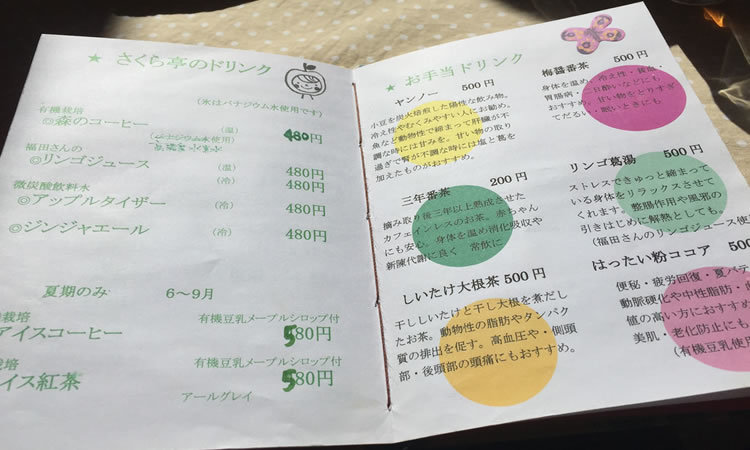 ★ さくら亭のドリンク
(氷はバナジウム水使用です)
有機栽培
◎森のコーヒー (温) 480円
(バナジウム水使用)
福田さんの
◎リンゴジュース (温) 480円
(冷) 480円
微炭酸飲料水
◎アップルタイザー (冷) 480円
◎ジンジャエール (冷) 480円
夏期のみ 6〜9月
栽培 有機豆乳メープルシロップ付
アイスコーヒー 580円
栽培 有機豆乳メープルシロップ付
イス紅茶 580円
アールグレイ
★ お手当ドリンク
ヤンノー 500円
小豆を炭火焙煎した陽性な飲み物。
冷え性やむくみやすい人にお勧め。
魚など動物性で締まって肝臓が不
調な時には甘みを。甘い物の取り
過ぎで腎が不調な時には塩と葛を
加えたものがおすすめ。
三年番茶 200円
摘み取り後三年以上熟成させた
カフェインレスのお茶。赤ちゃん
にも安心。身体を温め消化吸収や
新陳代謝に良く 常飲に
しいたけ大根茶 500円
干ししいたけと干し大根を煮だし
たお茶。動物性の脂肪やタンパク
質の排出を促す。高血圧や・側頭
部・後頭部の頭痛にもおすすめ。
梅醤番茶 500円
身体を温め、冷え性・疲れ・
胃腸病・二日酔いなどにも
おすすめ。甘い物をとりすぎ
てだるい・眠いときにも
リンゴ葛湯 500円
ストレスできゅっと締まって
いる身体をリラックスさせて
くれます。整腸作用や風邪の
引きはじめに解熱としても。
(福田さんのリンゴジュース使
はったい粉ココア 500円
便秘・疲労回復・夏バテ
動脈硬化や中性脂肪・
値の高い方におすす
美肌・老化防止にも
(有機豆乳使用